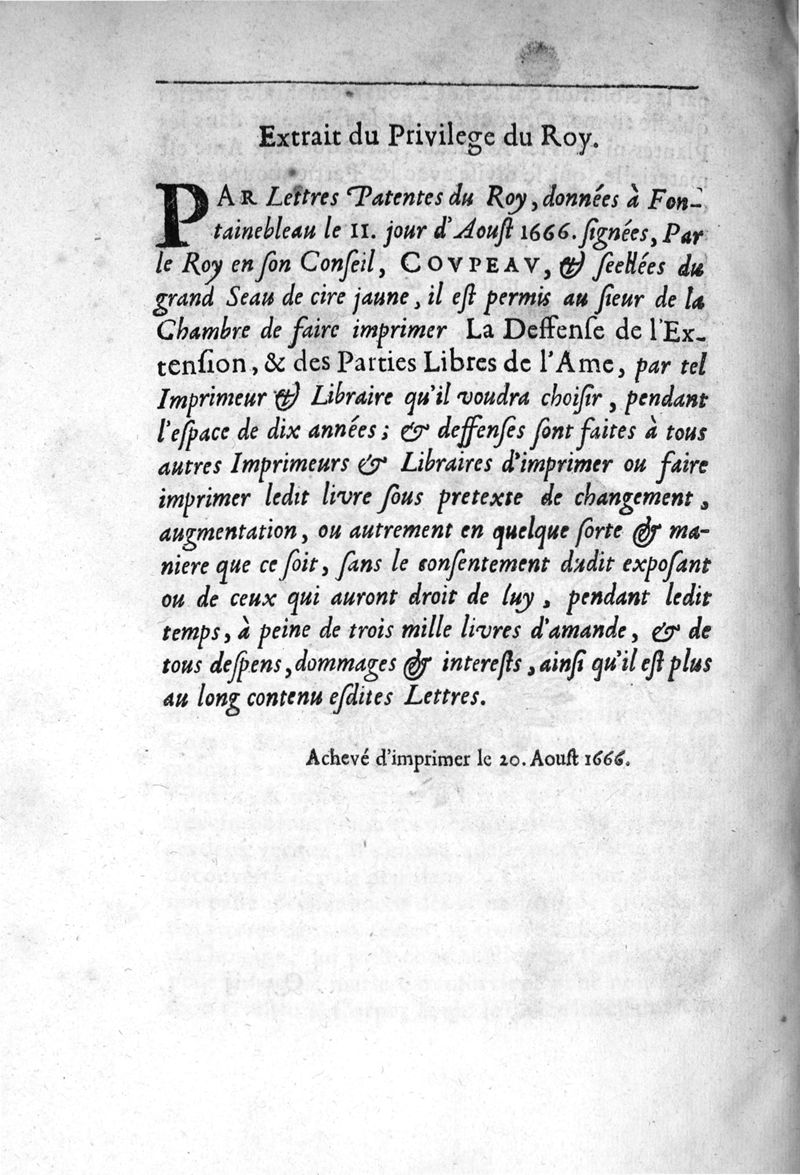 Extrait du Privilege du Roy.
PAR Lettres Patentes du Roy, données à Fon-
tainebleau le 11. jour d'Aouſt 1666. ſignées, Par
le Roy en ſon Conſeil, COVPEAV, & ſeellées du
grand Seau de cire jaune, il eſt permis au ſieur de la
Chambre de faire imprimer La Deffenſe de l'Ex-
tenſion, & des Parties Libres de l'Ame, par tel
Imprimeur & Libraire qu'il voudra choiſir, pendant
l'eſpace de dix années; & deffenſes ſont faites à tous
autres Imprimeurs & Libraires d'imprimer ou faire
imprimer ledit livre ſous pretexte de changement,
augmentation, ou autrement en quelque ſorte & ma-
niere que ce ſoit, ſans le conſentement dudit expoſant
ou de ceux qui auront droit de luy, pendant ledit
temps, à peine de trois mille livres d'amande, & de
tous deſpens, dommages & intereſts, ainſi qu'il eſt plus
au long contenu eſdites Lettres.
Achevé d'imprimer le 20. Aouſt 1666.